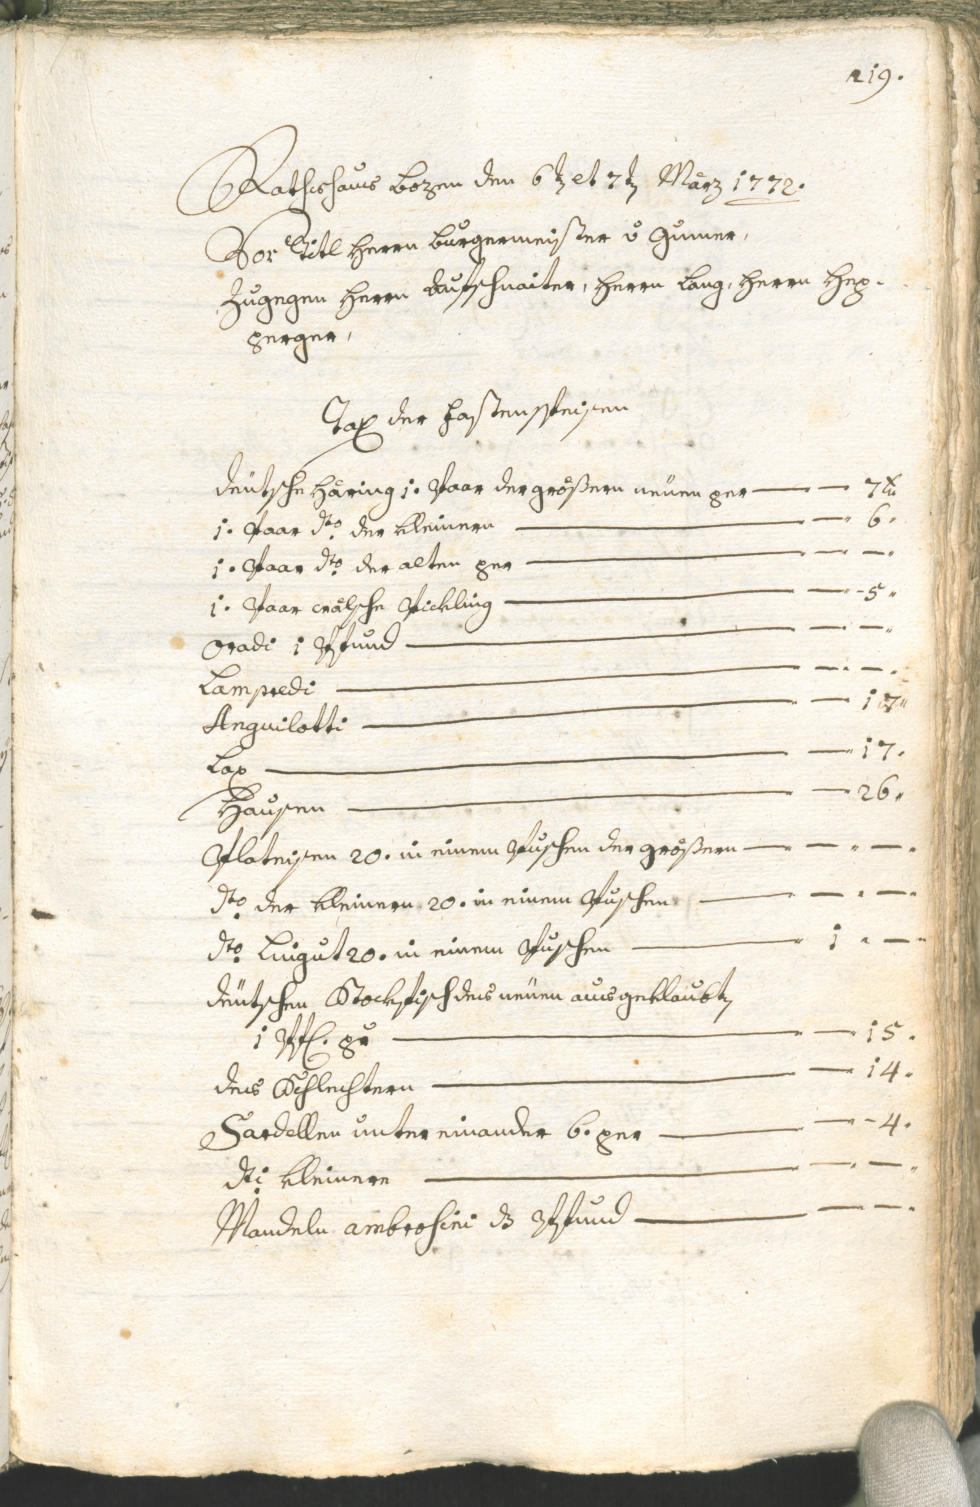 219.
Rathshaus Bozen den 6t et 7t März 1772.
Vor Titl Herrn Burgermeister v Gumer,
Zugegen Herrn Aufschnaiter, Herrn Lang, Herrn Hep-
perger,
Tax der Fastenspeisen
deütsche Häring 1. Paar der größern neüen per — — 7 xr
1. Paar dto der kleinern — — 6.
1. Paar dto der alten per — — —
1. Paar Pickling — — 5.
oradi 1 Pfund — — —
Lampredi — — —
Anguilotti — — 17.
Lax — — 17.
Hausen — — 26.
Plateisen 20. in einem Puschen der größern — — —
dto der kleinern 20. in einem Puschen — — —
dto Lingut 20. in einem Puschen — 1. —
deütschen Stockfisch des neüen ausgeklaubt
1 Pf. per — — 15.
des Schlechtern — — 14.
Sardellen untereinander 6. per — — 4.
dti kleinere — — —
Mandeln ambrosini ds Pfund — — —